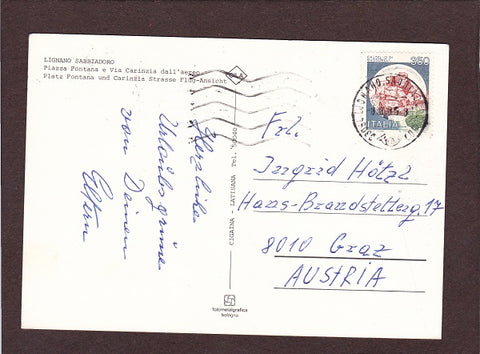 LIGNANO SABBIADORO
Piazza Fontana e Via Carinzia dall'aereo
Platz Fontana und Carinzia Strasse Flug-Ansicht
Herzliche
Urlaubsgrüsse
von Deinen
Eltern
CIGAINA - LATISANA Tel.
fotometalgrafica
bologna
350
ITALIA
Frl.
Ingrid Hötzl
Hans-Brandstetterg. 17
8010 Graz
AUSTRIA